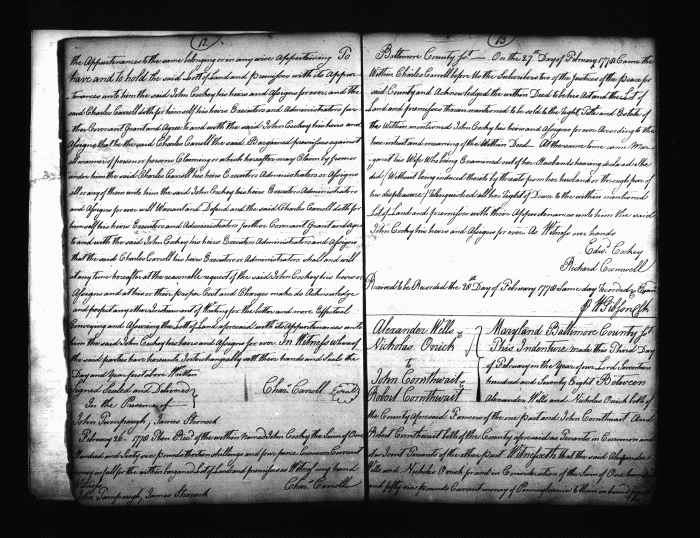 12
the Appurtenances to the same belonging or in any wise Appertaining To
have and to hold the said Lott of Land and Premisses with its Appur
-tenances unto him the said John Cockey his heirs and Assigns for ever and the
said Charles Carroll doth for himself his heirs Executors and Administrators fur
ther Covenant Grant and Agree to and with the said John Cockey his heirs and
Assigns that he the said Charles Carroll the said Bargained premisses against
all manner of person or persons Claiming or which hereafter may Claim by from or
under him the said Charles Carroll his heirs Executors Administrators or Assigns
all or any of them unto him the said John Cockey his heirs Executors Administrators
and Assigns for ever will Warrant and Defend and the said Charles Carroll doth for
himself his heirs Executors and Administrators further Covenant Grant and agree
to and with the said John Cockey his heirs Executors Administrators and Assigns
that the said Charles Carroll his heirs Executors or Administrators shall and will
at any time hereafter at the reasonable request of the said John Cockey his heirs or
Assigns and at his or their proper Cost and Charges make do Acknowledge
and perfect any other Instrument of Writing for the better and more Effectual
Conveying and Assuring the Lott of Land aforesaid with its Appurtenances unto
him the said John Cockey his heirs and Assigns for ever In Witness whereof
the said parties have hereunto Interchangeably sett their hands and Seals the
Day and Year first above Written
Signed Sealed and Delivered
In the Presence of
Chas. Carroll (Seal)
John Pumphaugh, James
February 26th 1778 Then Recd. of the within Named John Cockey the Sum of One
Hundred and Sixty six pounds thirteen shillings and four pence Common Current
money in full for the within Bargained Lott of Land and premisses as Witness my hand
Witness
Chas. Carroll
John Pumphaugh, James
13
Baltimore County Sst. On the 27th Day of February 1778 Came the
Within Charles Carroll before Us the Subscribers two of the Justices of the Peace for
said County and Acknowledged the within Deed to be his Act and the Lot of
Land and premisses therein mentioned to be sold to the Right, Title and Estate of
the Within mentioned John Cockey his heirs and Assigns for ever According to the
true intent and meaning of the Within Deed At the same time came Mar
garet his Wife who being Examined out of her Husbands hearing declared She
did Without being induced thereto by threats from her husband or through fear of
his displeasure Relinquished all her Right of Dower to the within mentioned
Lot of Land and premisses with their Appurtenances unto him the said
John Cockey his heirs and Assigns for ever. As Witness our hands
Edw. Cockey
Richard Cromwell
Received to be Recorded the 28th Day of February 1778 Same day recorded &
Gibson Clk
Alexander Wells
Nicholas Orrick
to
John Cornthwait
Robert Cornthwait
Maryland Baltimore County Sst
This Indenture made this Third Day
of February in the Year of our Lord Seventeen
hundred and Seventy Eight Between
Alexander Wells and Nicholas Orrick both of
the County Aforesaid Farmers of the one part and John Cornthwait And
Robert Cornthwait both of the County aforesaid as Tenants in Common and
not Joint Tenants of the other part Witnesseth that the said Alexander
Wells and Nicholas Orrick for and in Consideration of the Sum of One hundred
and fifty six pounds Current money of Pennsylvania to them in hand